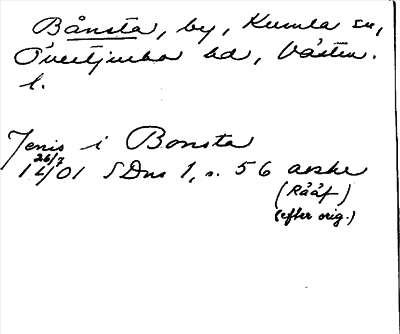 Bånsta, by, Kumla sn,
Övertjurbo hd, Västm.
l.
Jenis i Bonsta
26/7
1401 SDns 1, s. 56 avskr
(Rååf)
(efter orig.)